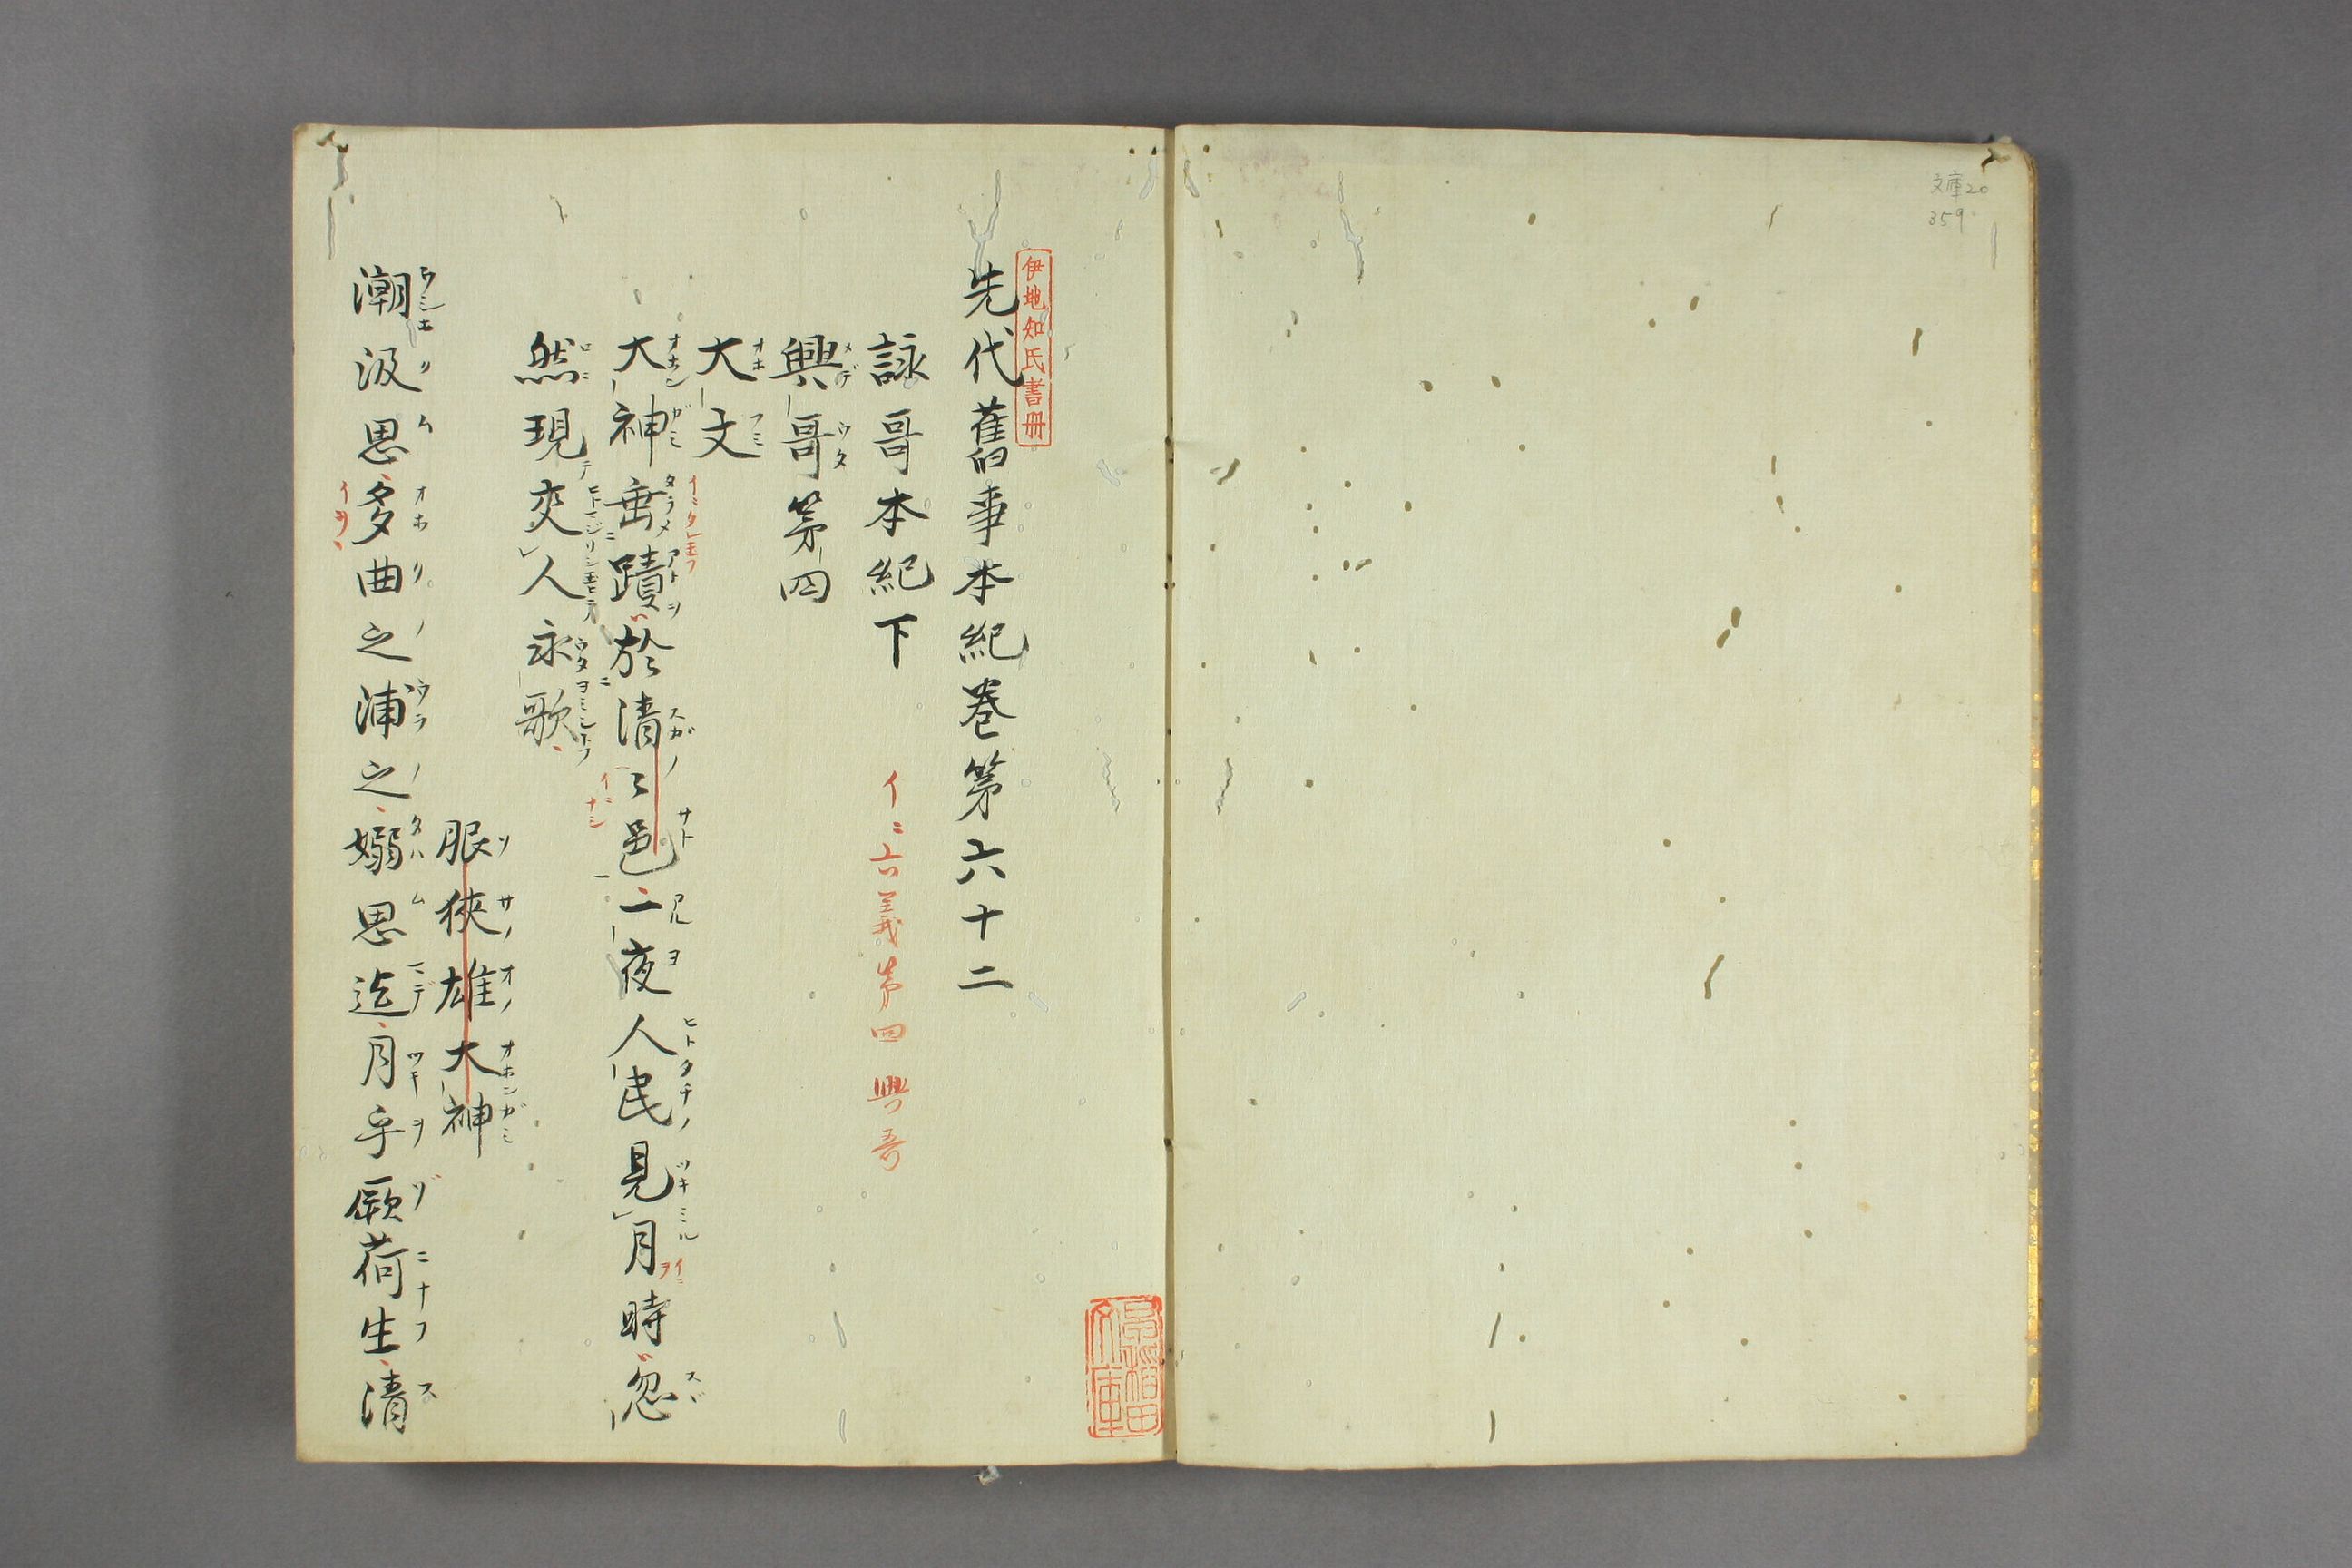 文庫20
359
伊地知氏書冊
先代舊事本紀巻第六十二
詠哥本紀下 イニ六義第四興哥
興哥第四
大文
大神垂蹟於清〻邑一夜人民見月時忽
然現交人永歌
服狹雄大神
潮汲思多曲之浦之嫋思迄月乎厥荷生清
早稻田文庫